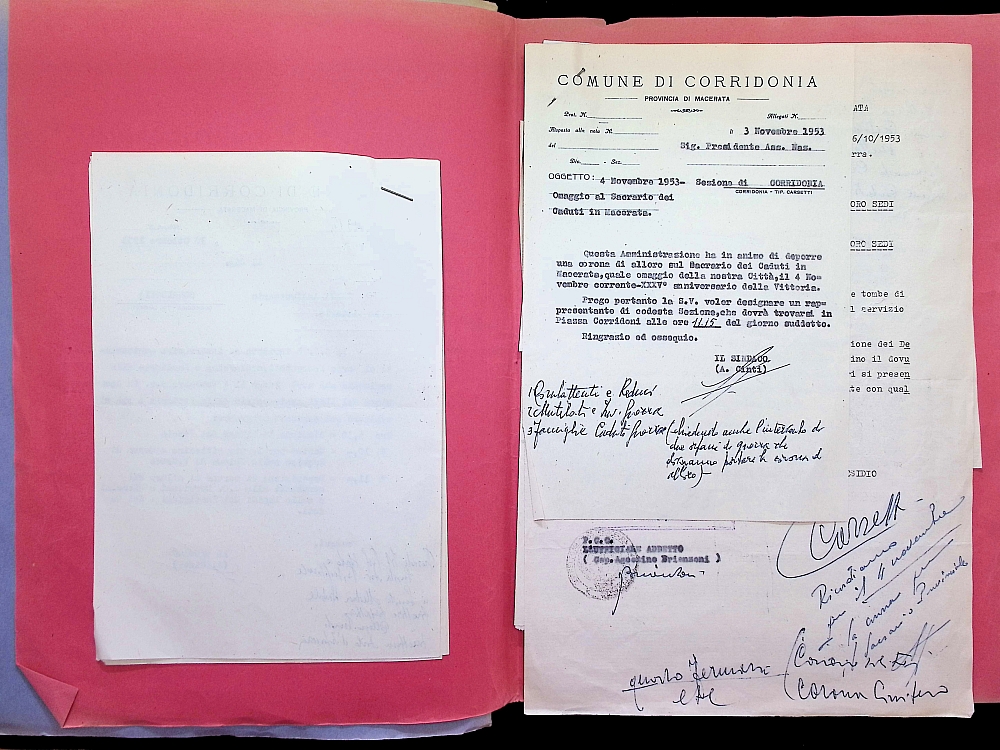 COMUNE DI CORRIDONIA
PROVINCIA DI MACERATA
Prot. N.
Allegati N.
Risposta alla nota N.
3 Novembre 1953
del
Sig. Presidente Ass. Naz.
Div. Sez.
OGGETTO: 4 Novembre 1953- Sezione di CORRIDONIA
CORRIDONIA - TIP. CARSETTI
Omaggio al Sacrario dei
Caduti in Macerata.
Questa Amministrazione ha in animo di deporre
una corona di alloro sul Sacrario dei Caduti in
Macerata,quale omaggio della nostra Città,il 4 No-
vembre corrente-XXXV° anniversario della Vittoria.
Prego pertanto la S.V. voler designare un rap-
presentante di codesta Sezione,che dovrà trovarsi in
Piazza Corridoni alle ore 11,15 del giorno suddetto.
Ringrazio ed ossequio.
IL SINDACO
(A. Cinti)
1) Combattenti e Reduci
2) Mutilati e Inv. Guerra
3) Famiglie Caduti Guerra (chiedendo anche l'intervento di
due orfani di guerra che
portare la corona di
alloro)
ATA
6/10/1953
rra.
ORO SEDI
ORO SEDI
e tombe di
l servizio
ione dei De
ino il dovu
ri si presen
te con qual
SIDIO
P.C.C.
L'UFFICIALE ADDETTO
( Cap.Agostino Brienzoni )
Carsetti
Ricordiamo
per il 4 novembre
la
Corona
quarto
Corona